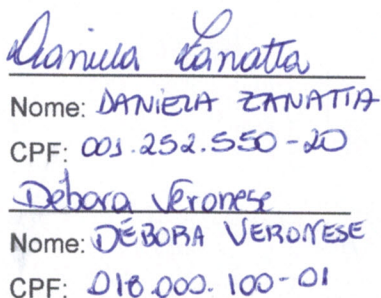 Daniela Zanatta
Nome: DANIELA ZANATTA
CPF: 001.252.550-20
Débora Veronese
Nome: DÉBORA VERONESE
CPF: 018.000.100-01